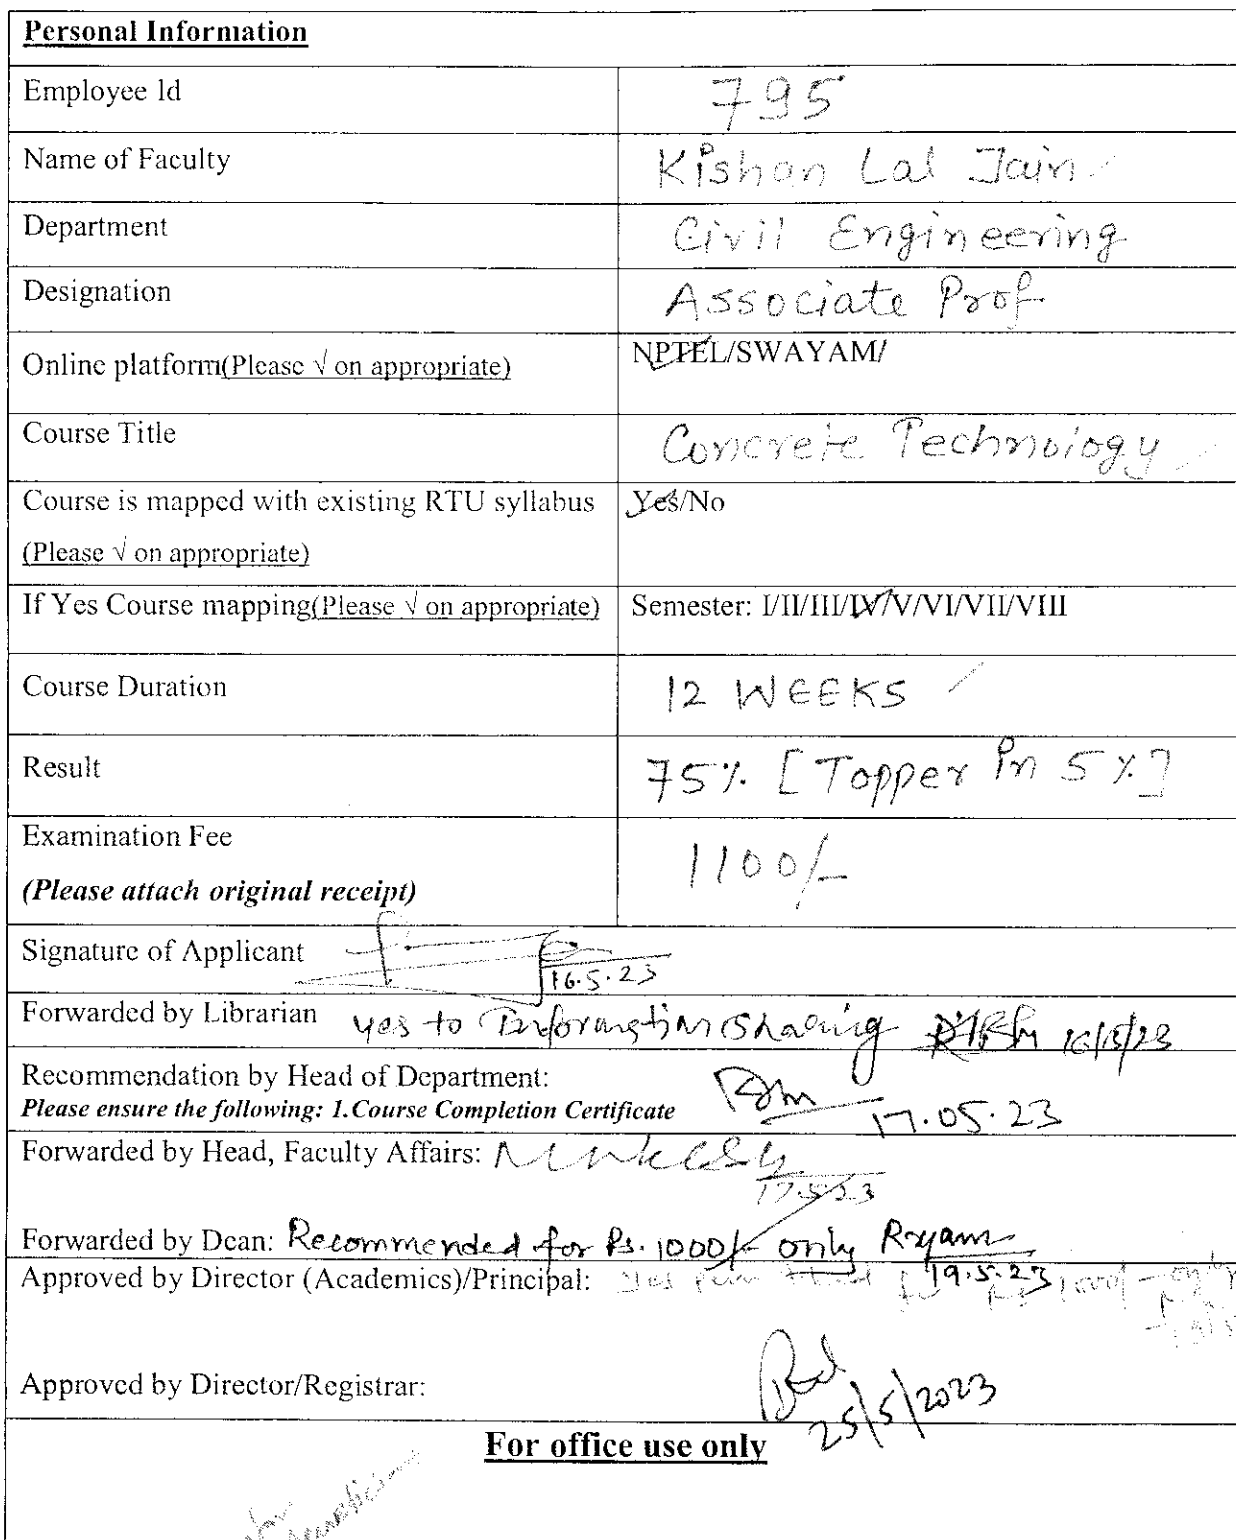 Personal Information
Employee Id 795
Name of Faculty Kishan Lal Jain
Department Civil Engineering
Designation Associate Prof.
Online platform(Please √ on appropriate) NPTEL/SWAYAM/
Course Title Concrete Technology
Course is mapped with existing RTU syllabus Yes/No
(Please √ on appropriate)
If Yes Course mapping(Please √ on appropriate) Semester: I/II/III/IV/V/VI/VII/VIII
Course Duration 12 WEEKS
Result 75% [Topper in 5%]
Examination Fee 1100/-
(Please attach original receipt)
Signature of Applicant
16.5.23
Forwarded by Librarian yes to Information Sharing 16/5/23
Recommendation by Head of Department:
Please ensure the following: 1.Course Completion Certificate 17.05.23
Forwarded by Head, Faculty Affairs:
17.5.23
Forwarded by Dean: Recommended for Rs. 1000/- only
19.5.23
Approved by Director (Academics)/Principal:
Approved by Director/Registrar:
25/5/2023
For office use only